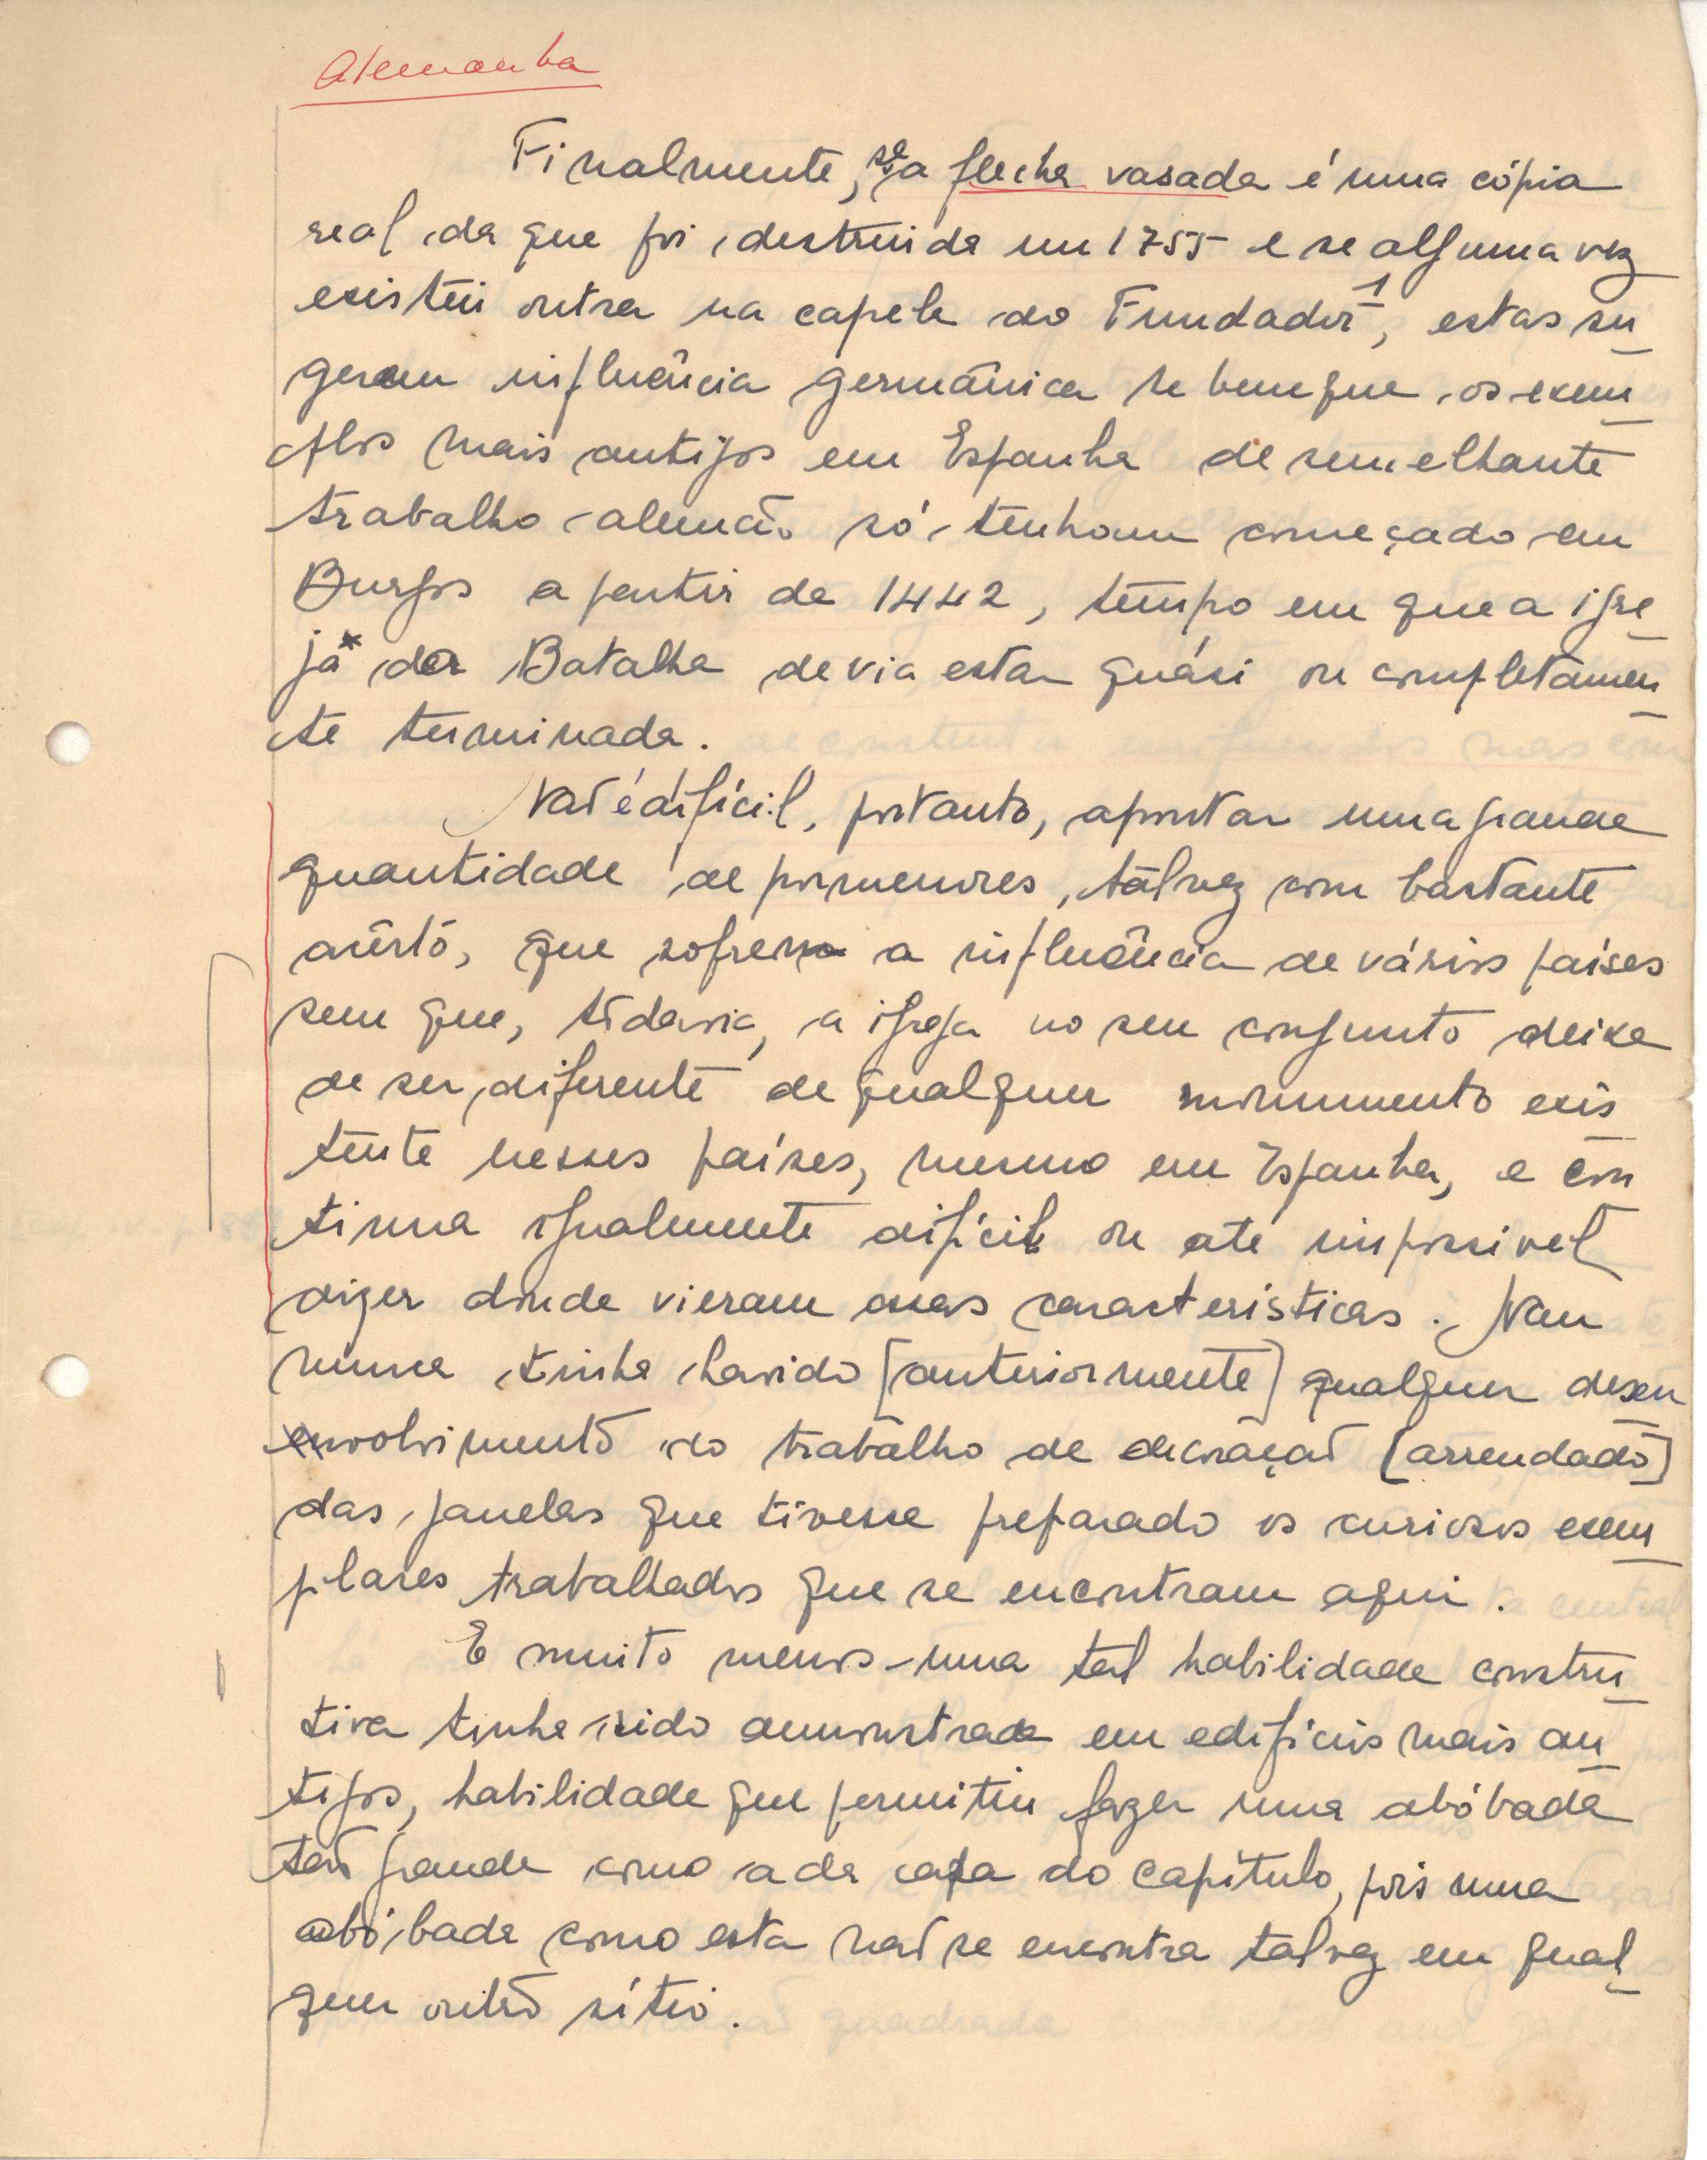 Alemanha
Finalmente, se a flecha vasada é uma cópia
real da que foi destruida em 1755 e se alguma vez
existiu outra na capela do Fundador 1, estas su
gerem influência germânica se bem que os exem
plos mais antigos em Espanha de semelhante
trabalho alemão só tenham começado em
Burgos a partir de 1442, tempo em que a igre
ja* da Batalha devia estar quási ou completamen
te terminada.
Não é difícil, portanto, apontar uma grande
quantidade de pormenores, talvez com bastante
acêrto, que sofrem a influência de vários países
sem que, todavia, a igreja no seu conjunto deixe
de ser diferente de qualquer monumento exis
tente nesses países, mesmo em Espanha, e con
tinua igualmente dificil ou até impossivel
dizer donde vieram essas caracteristicas. Nem
nunca tinha havido [anteriormente] qualquer desen
volvimento no trabalho de decoração [arrendado]
das janelas que tivesse preparado os curiosos exem
plares trabalhados que se encontram aqui.
E muito menos uma tal habilidade constru
tiva tinha sido demonstrada em edifícios mais an
tigos, habilidade que permitiu fazer uma abóbada
tão grande como a da casa do capítulo, pois uma
abóbada como esta não se encontra talvez em qual
quer outro sítio.